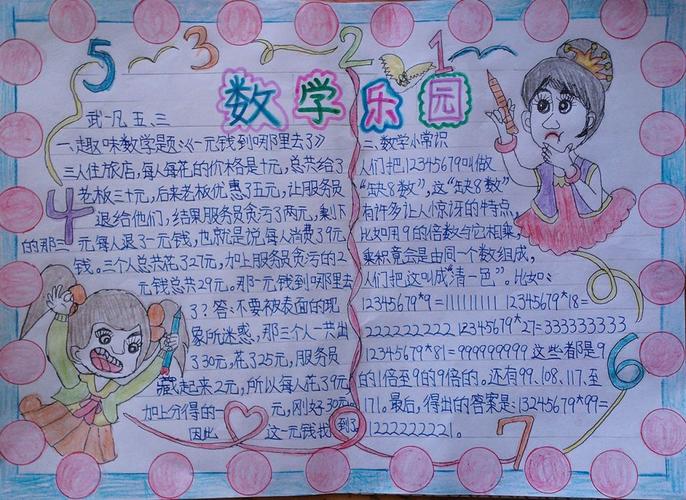 5 3 2 1
数学乐园
武一凡 五、三
一、趣味数学题《一元钱到哪里去了》
三人住旅店,每人每花的价格是十元,总共给了
老板三十元,后来老板优惠了五元,让服务员
退给他们,结果服务员贪污了两元,剩下
的那三元每人退了一元钱,也就是说,每人消费了9元
钱。三个人总共花了27元,加上服务员贪污的2
元钱总共29元。那一元钱到哪里去
了?答:不要被表面的现
象所迷惑,那三个人一共出
了30元,花了25元,服务员
藏起来2元,所以每人花了9元
加上分得的一元,刚好30元。
因此这一元钱找到了
4
二、数学小常识
人们把12345679叫做
“缺8数”,这“缺8数”
有许多让人惊讶的特点,
比如用9的倍数与它相乘,
乘积竟会是由同一个数组成,
人们把这叫成“清一色”。比如:
12345679*9=111111111 12345679*18=
222222222 12345679*27=333333333
12345679*81=999999999 这些都是9
的1倍至9的9倍的。还有99、108、117、至
171。最后,得出的答案是:13245679*99=
1222222221。
6
7